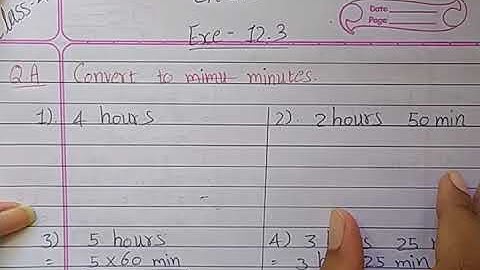 Class-
Date
Page
Exe - 12.3
Q A Convert to mimu minutes.
1) 4 hours
2). 2 hours 50 min
3) 5 hours
= 5 x 60 min
4) 3 25
= 3 25 min